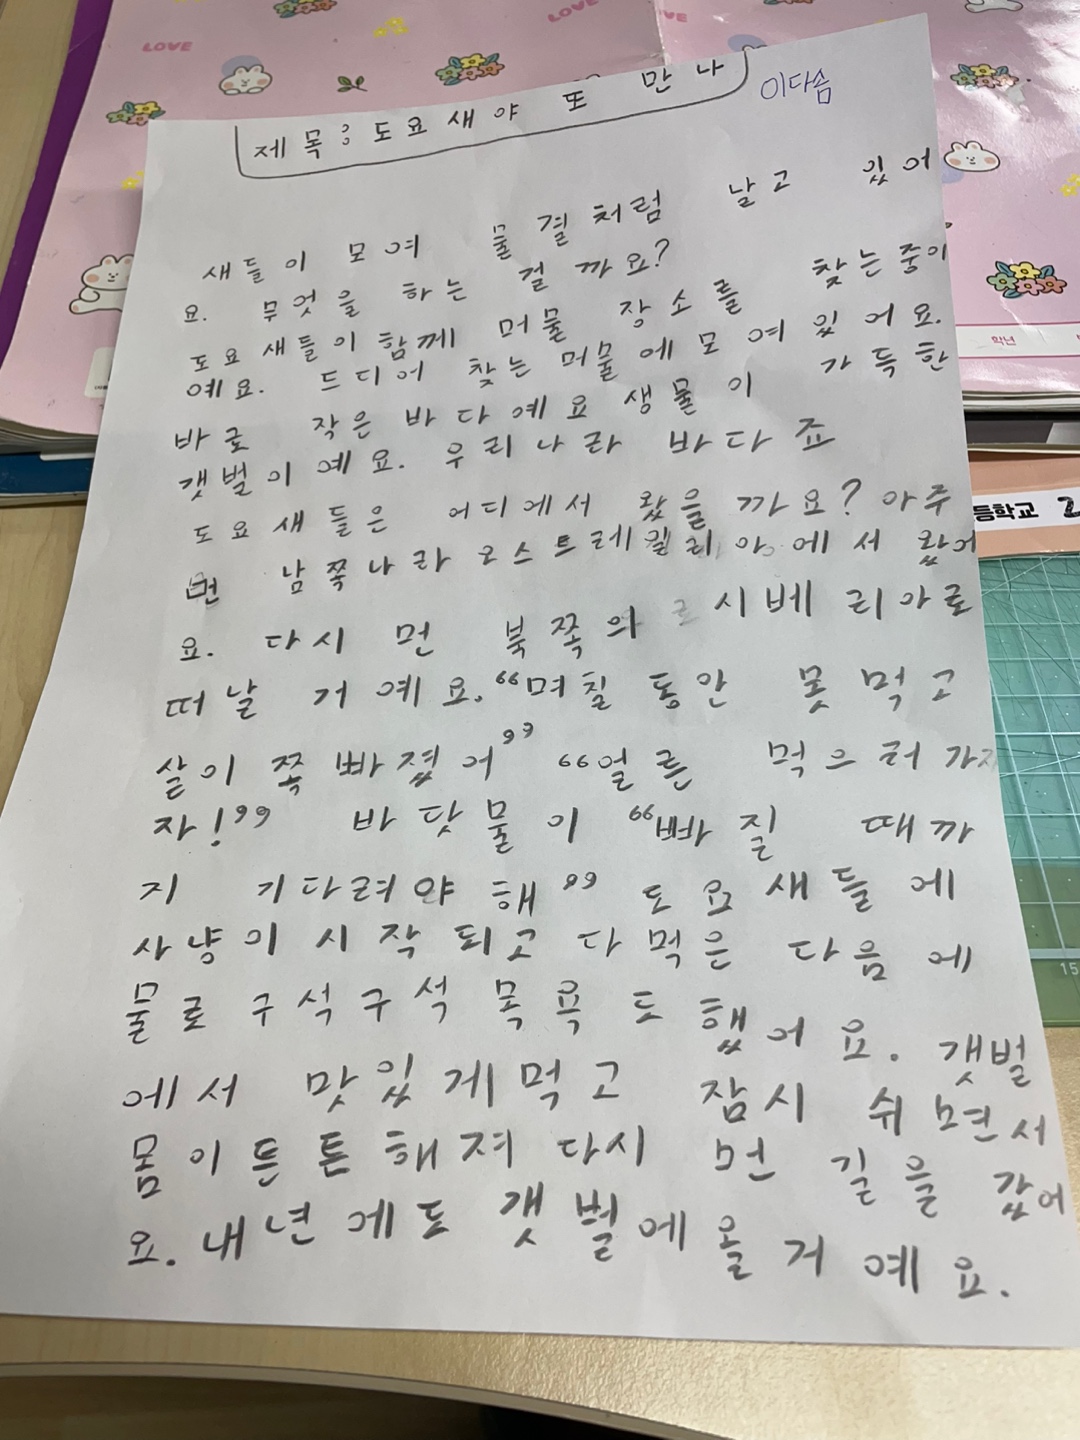 LOVE
LOVE
LOVE
제목: 도요새야 또 만나
이다솜
새들이 모여 물결처럼 날고 있어
요. 무엇을 하는 걸까요?
도요새들이 함께 머물 장소를 찾는중이
예요. 드디어 찾는머물에모여있어요.
바로 작은 바다예요 생물이 가득한
갯벌이예요. 우리나라 바다죠
도요새들은 어디에서 왔을까요? 아주
먼 남쪽나라오스트레일리아에서 왔어
요. 다시 먼 북쪽의 시베리아로
떠날 거예요. "며칠동안 못먹고
살이 쪽빠졌어" "얼른 먹으러가
자!" 바닷물이 "빠질 때까
지 기다려야해" 도요새들에
사냥이시작되고 다먹은 다음에
물로구석구석 목욕도했어요. 갯벌
에서 맛있게먹고 잠시 쉬면서
몸이튼튼해져 다시 먼 길을 갔어
요. 내년에도 갯벌에올거예요.
학년
등학교 2
15